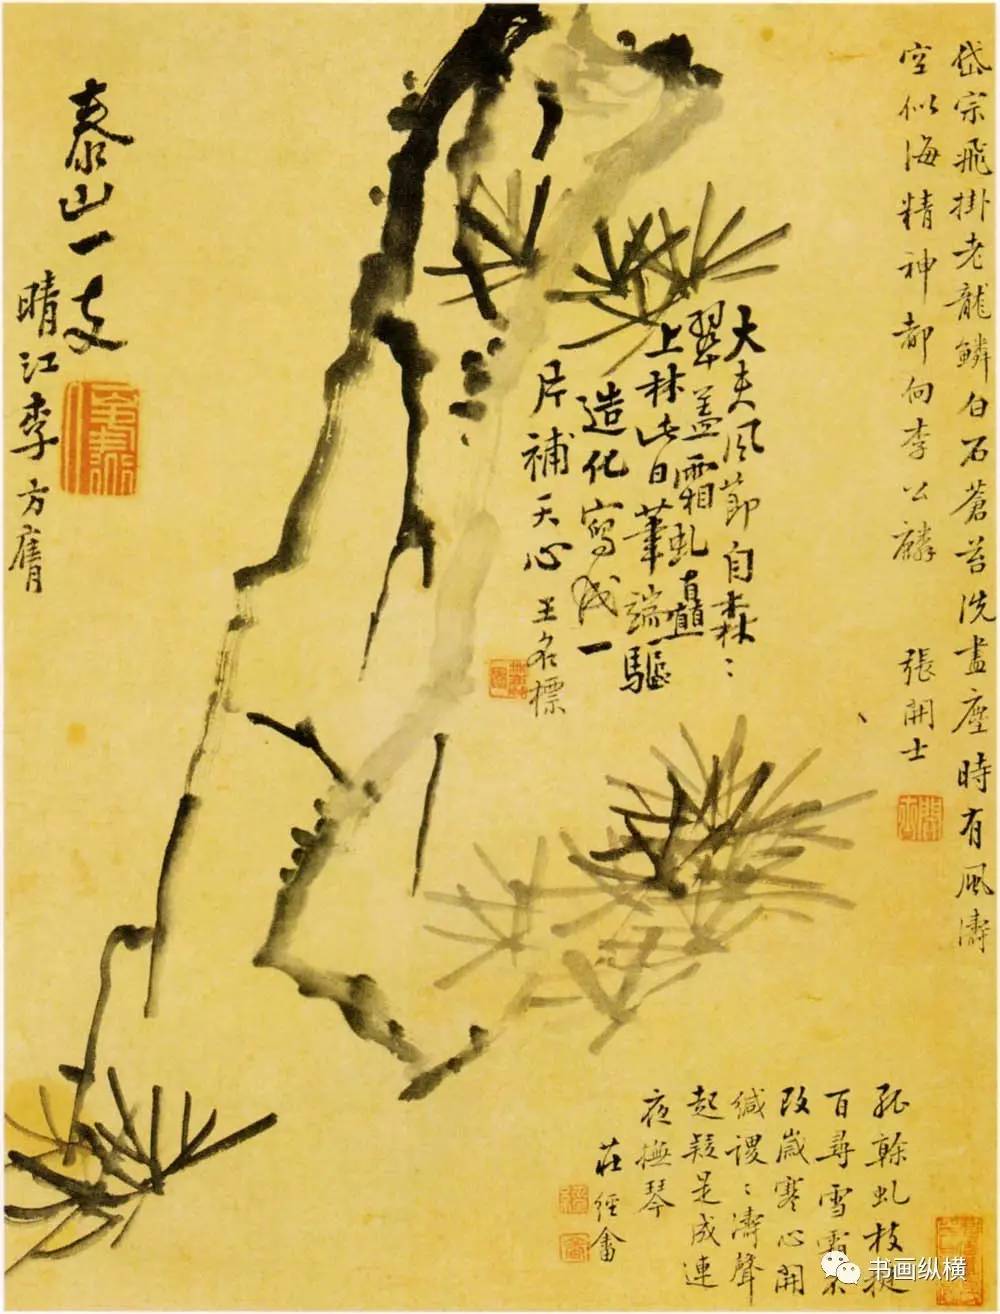 岱宗飛掛老龍鱗白石蒼苔洗盡塵時有風濤
空似海精神都向李公麟
張開士
大夫風節自森〻
翠蓋霜虬直
上林此日筆端驅
造化寫成一
片補天心
王名標
泰山一支
晴江李方膺
孤榦虬枝挺
百尋雪霜不
改歲寒心開
緘謖〻濤聲
起疑是成連
夜撫琴
莊經畬
书画纵横